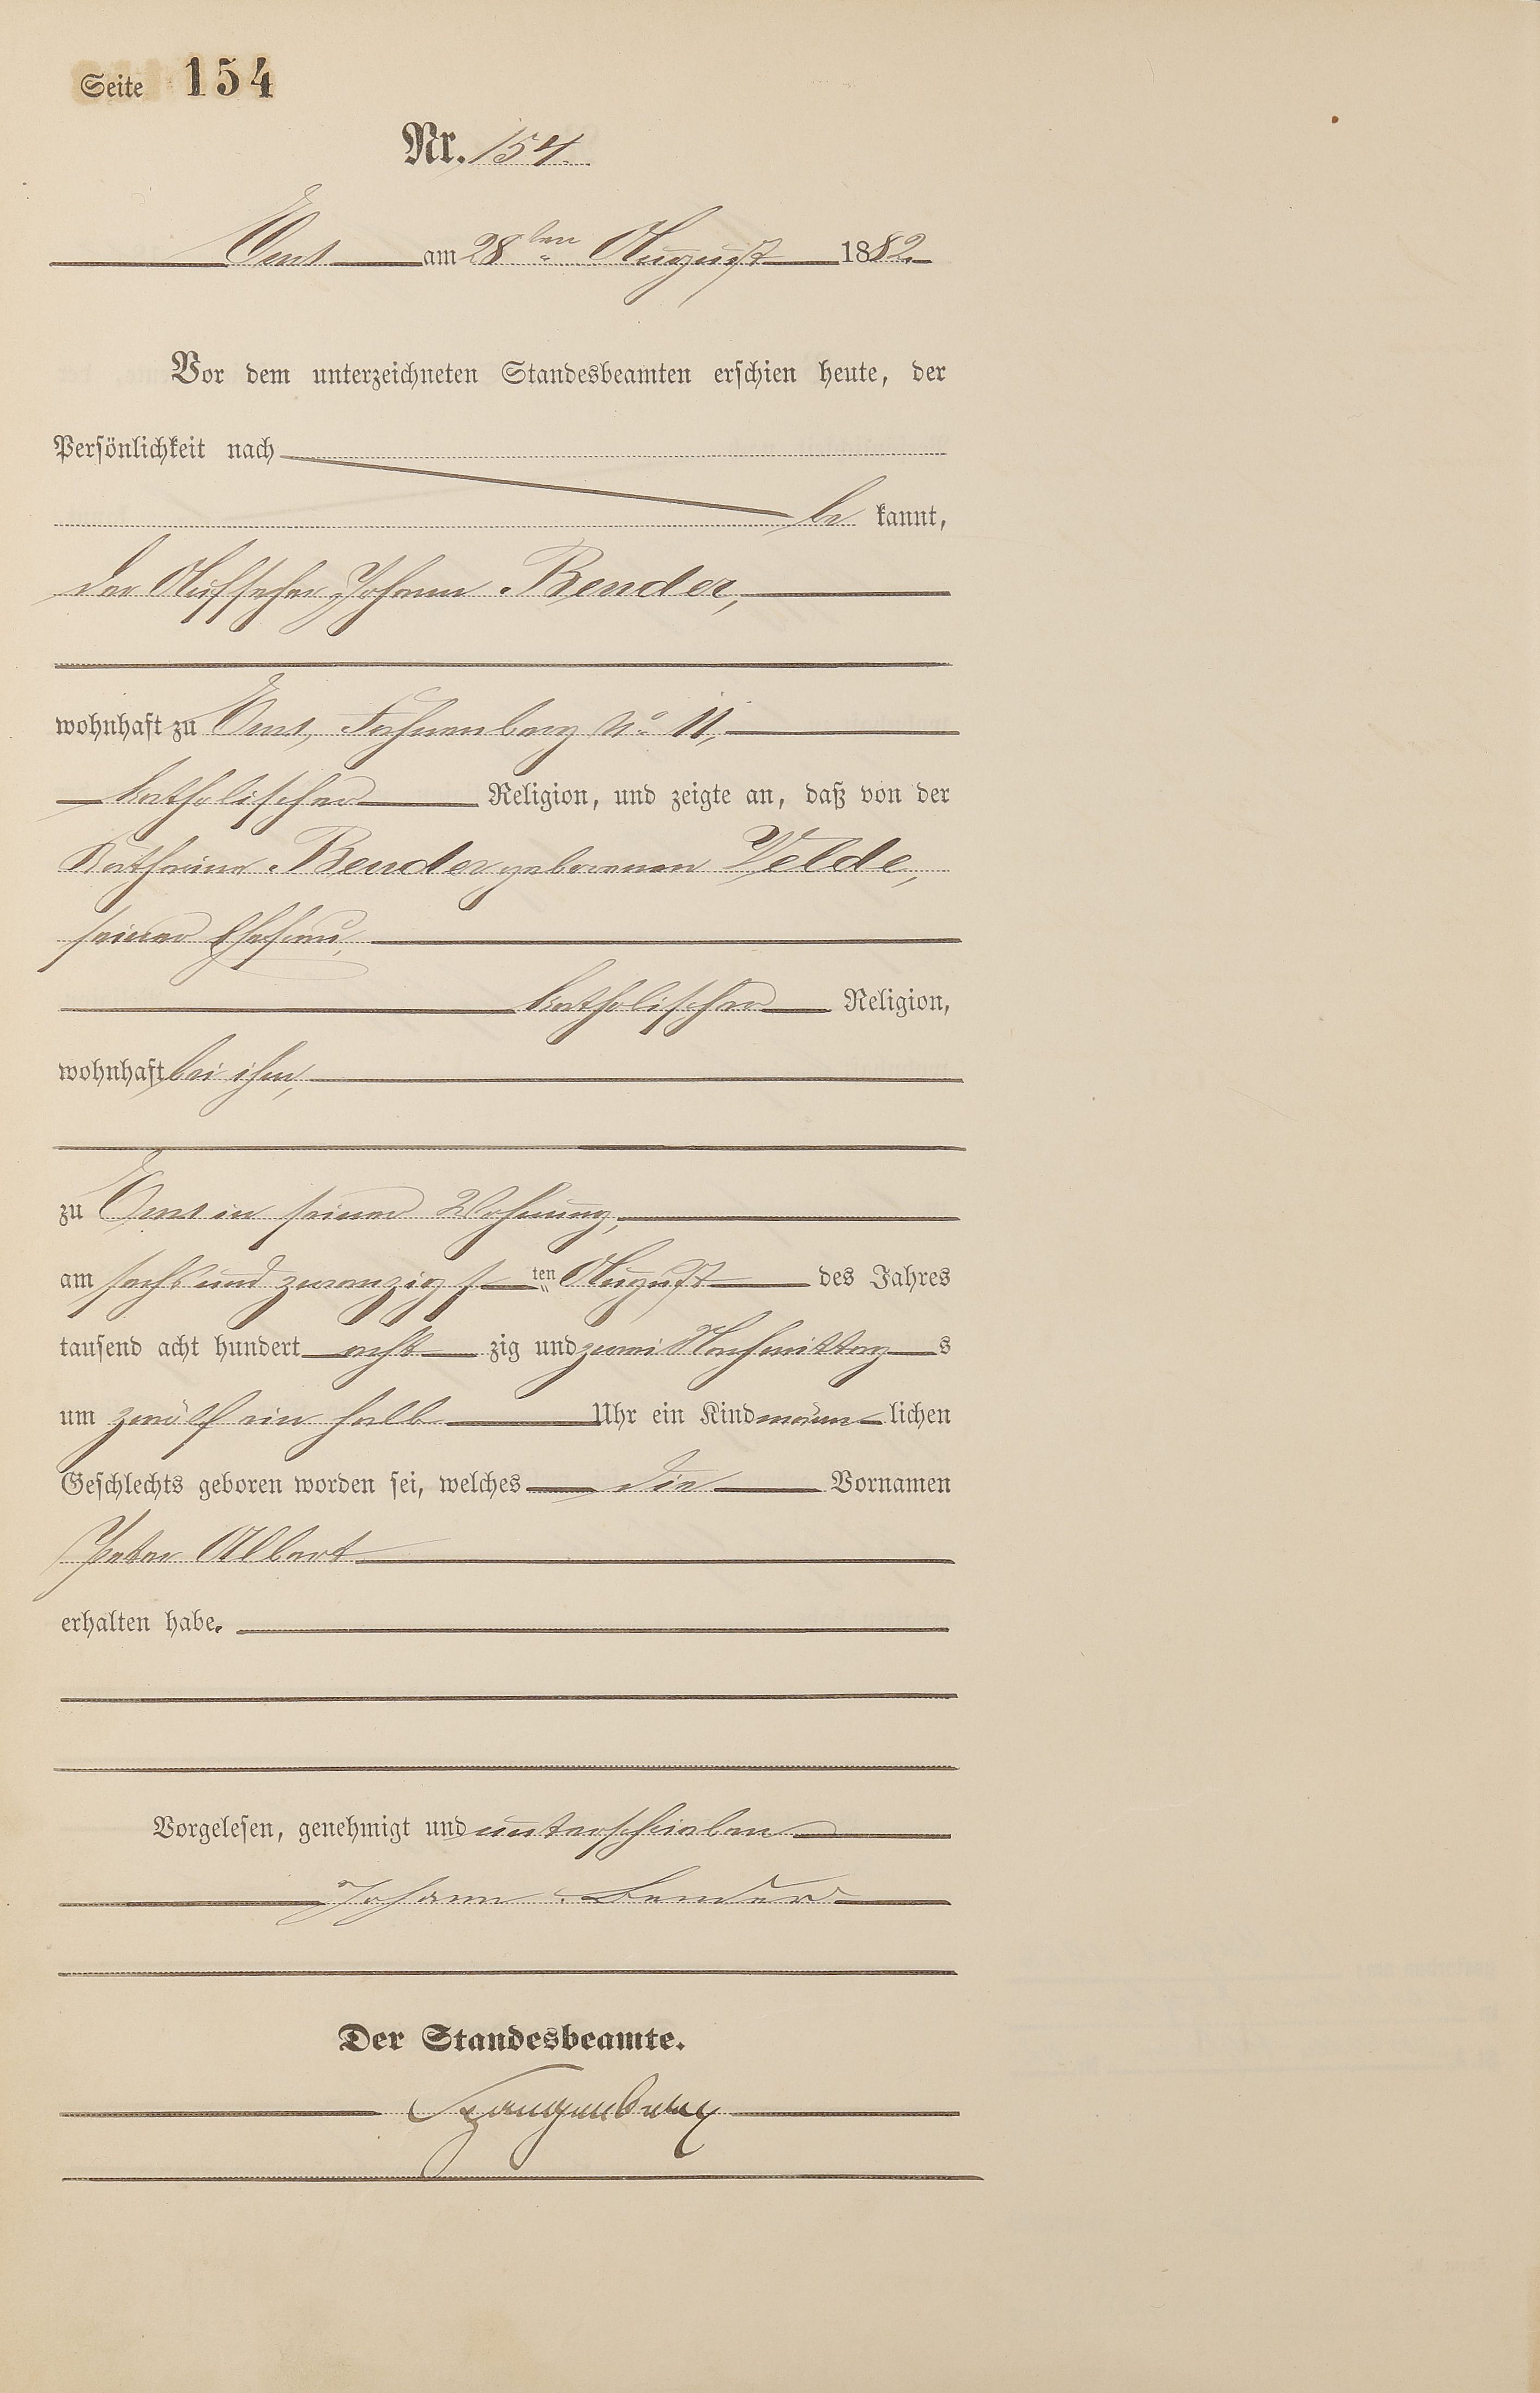 Seite 154
Nr. 154.
Ems am 28ten August 1882.
Vor dem unterzeichneten Standesbeamten erschien heute, der
Persönlichkeit nach
be kannt,
der Aufseher Johann Bender,
wohnhaft zu Ems, No 11,
katholischer Religion, und zeigte an, daß von der
Katharina Bender geborenen Velde,
seiner Ehefrau,
katholischer Religion,
wohnhaft bei ihm,
zu Ems in seiner Wohnung,
am sechs und zwanzigsten August des Jahres
tausend acht hundert acht zig und zwei Nachmittags
um zwölf ein halb Uhr ein Kind männlichen
Geschlechts geboren worden sei, welches die Vornamen
Peter Albert
erhalten habe.
Vorgelesen, genehmigt und unterschrieben
Johann Bender
Der Standesbeamte.